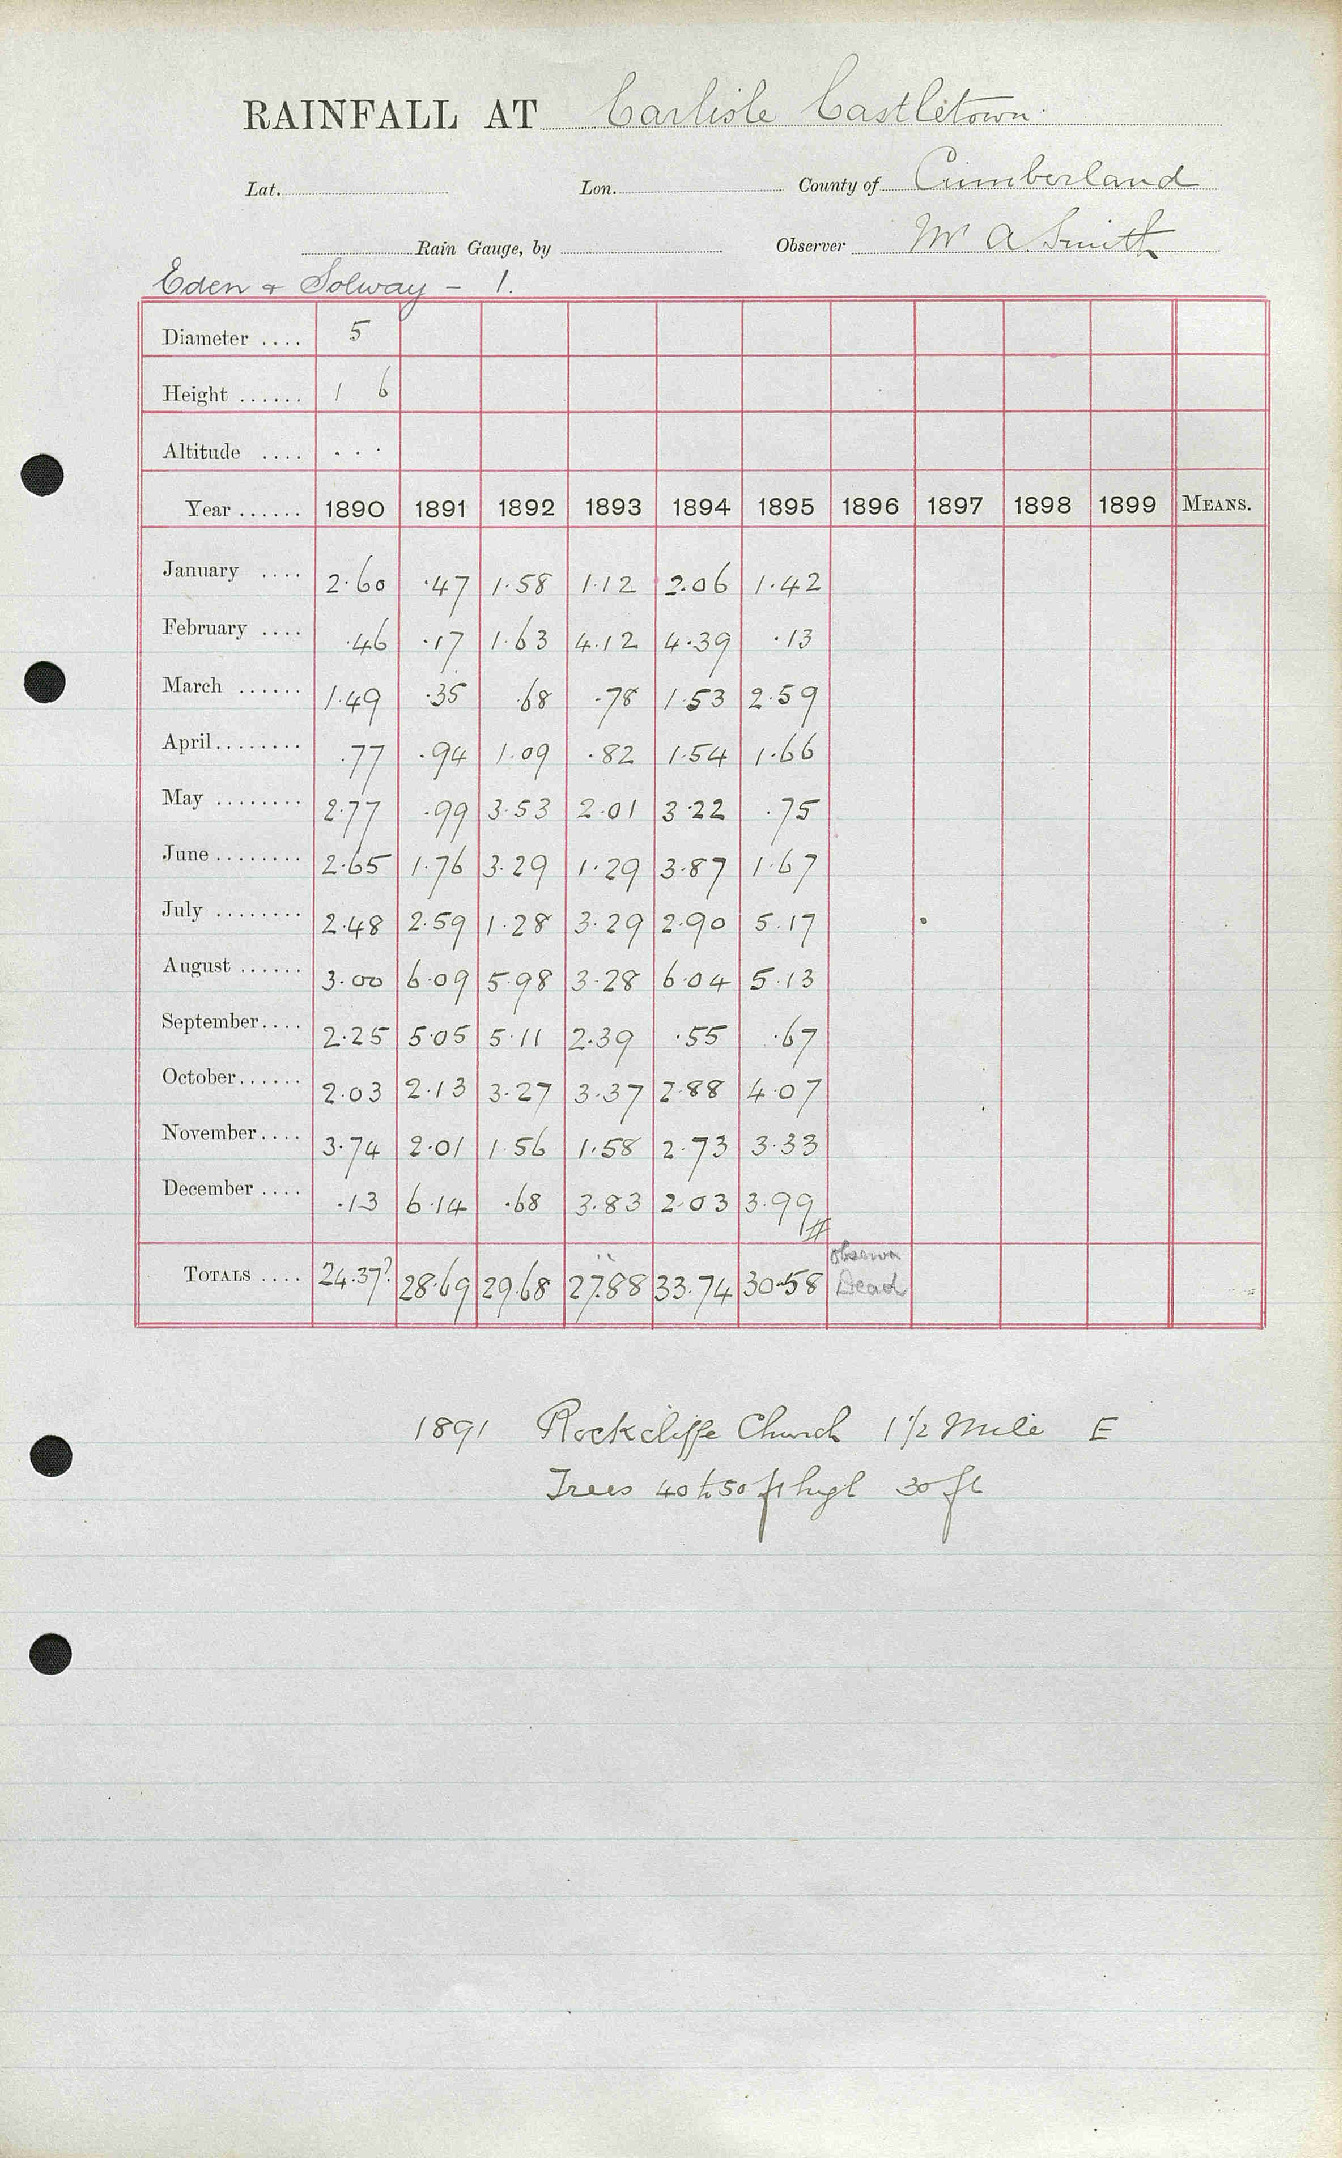 RAINFALL AT Carlisle Castletown
Lat. Lon. County of Cumberland
Rain Gauge, by Observer Mr A Smith
Eden & Solway - 1.
Diameter .... 5
Height ...... 1 6
Altitude .... . . .
Year ...... 1890 1891 1892 1893 1894 1895 1896 1897 1898 1899 MEANS.
January .... 2.60 .47 1.58 1.12 2.06 1.42
February .... .46 .17 1.63 4.12 4.39 .13
March ...... 1.49 .35 .68 .78 1.53 2.59
April........ .77 .94 1.09 .82 1.54 1.66
May ........ 2.77 .99 3.53 2.01 3.22 .75
June ........ 2.65 1.76 3.29 1.29 3.87 1.67
July ........ 2.48 2.59 1.28 3.29 2.90 5.17
August ...... 3.00 6.09 5.98 3.28 6.04 5.13
September.... 2.25 5.05 5.11 2.39 .55 .67
October...... 2.03 2.13 3.27 3.37 2.88 4.07
November.... 3.74 2.01 1.56 1.58 2.73 3.33
December .... .13 6.14 .68 3.83 2.03 3.99
TOTALS .... 24.37? 28.69 29.68 27.88 33.74 30.58 Observer Dead
1891 Rockcliffe Church 1 1/2 Mile E
Trees 40 to 50 ft high 30 ft